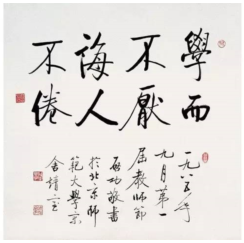 學而
不厭
誨人
不倦
一九八五年
九月第一
屆教師節
啟功敬書
於北京師
範大學